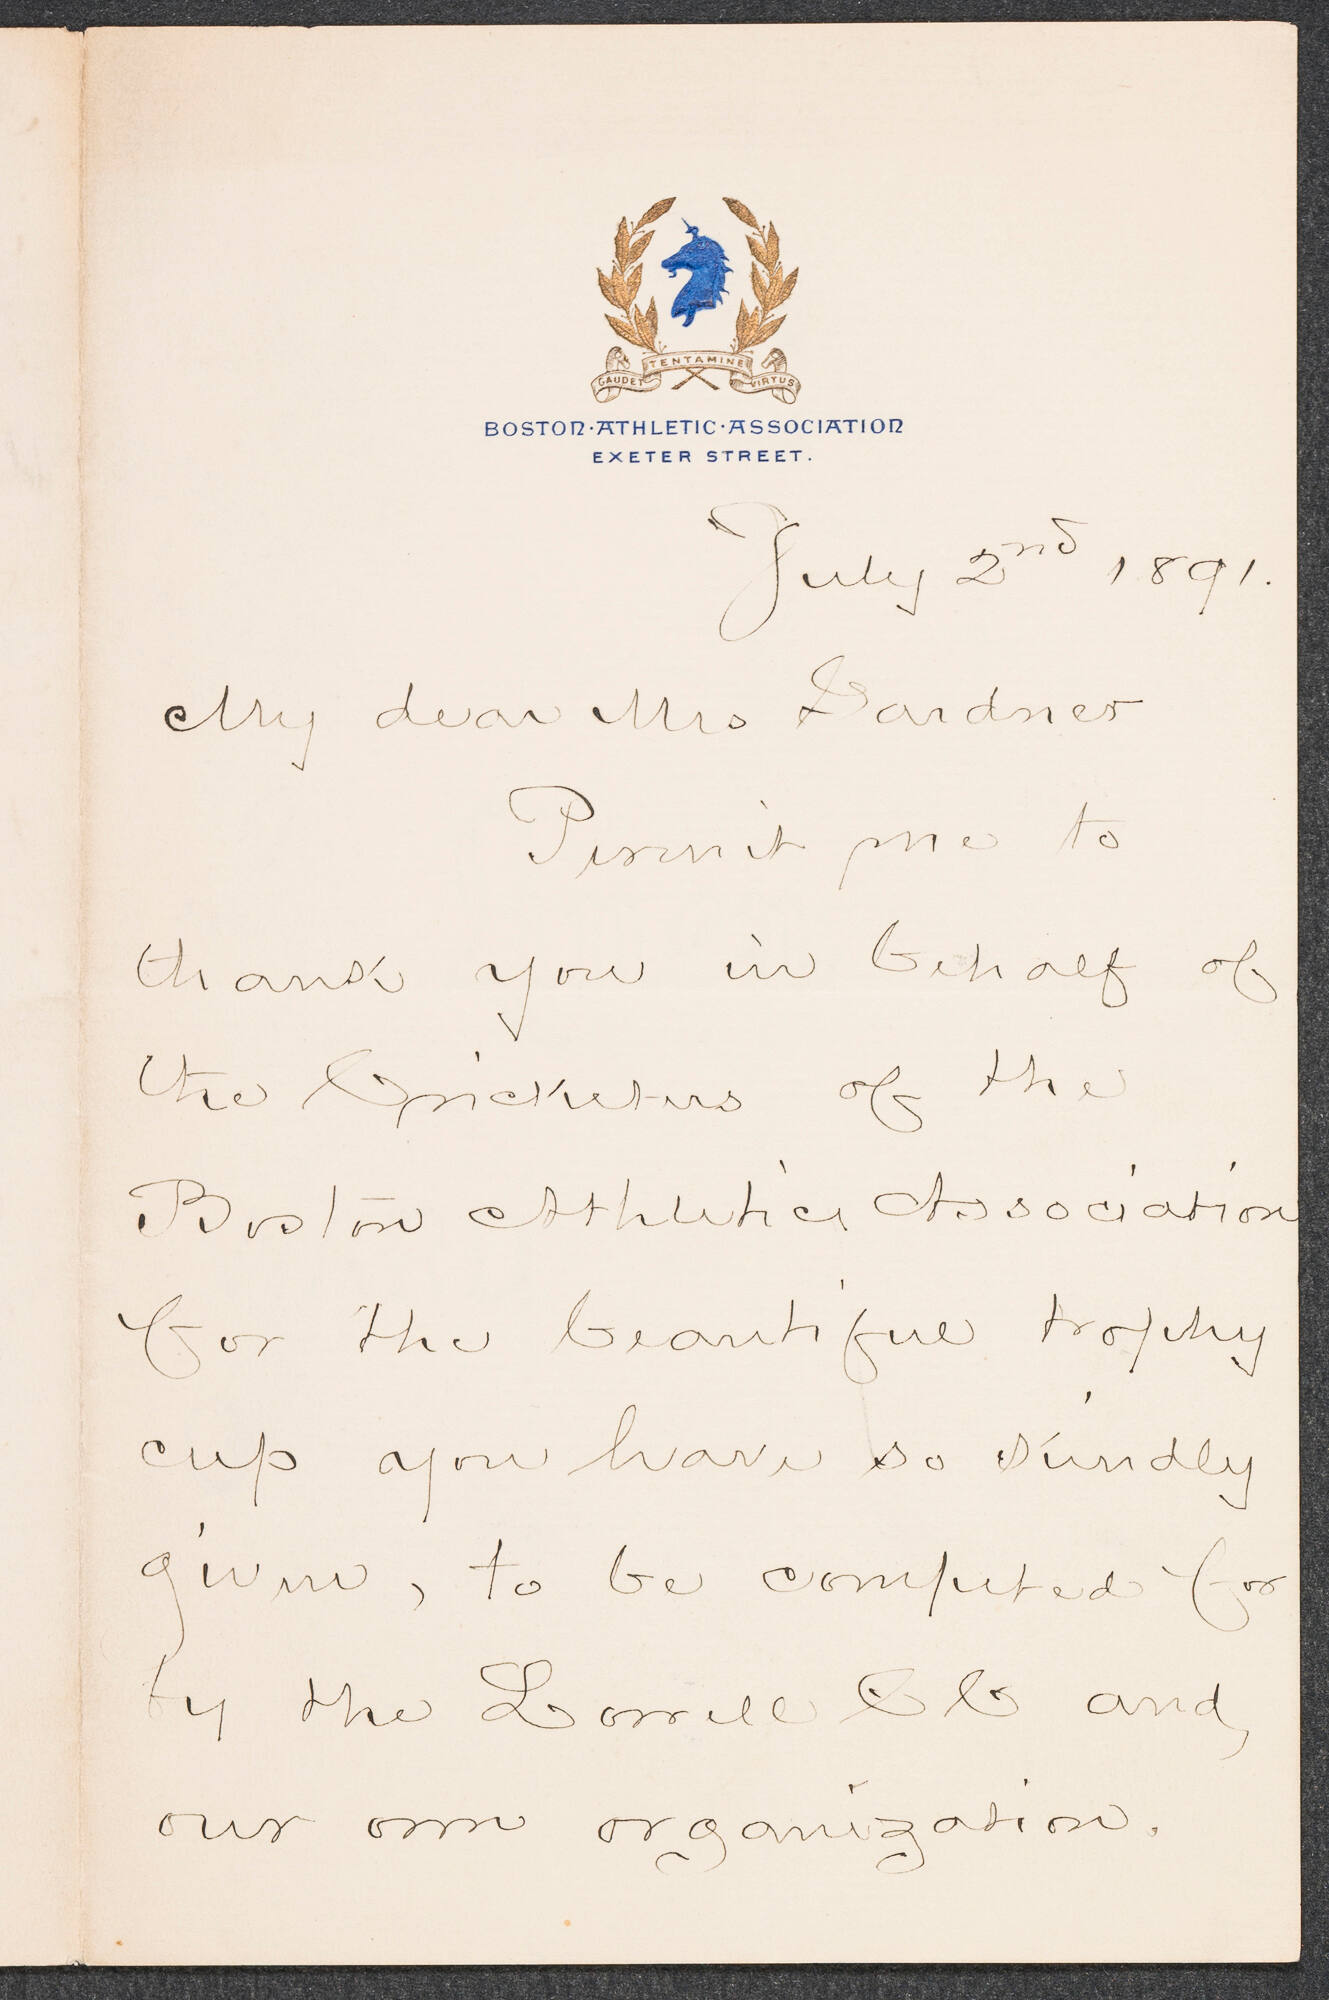 GAUDET TENTAMINE VIRTUS
BOSTON·ATHLETIC·ASSOCIATION
EXETER STREET.
July 2nd 1891.
My dear Mrs Gardner
Permit me to
thank you in behalf of
the Cricketers of the
Boston Athletic Association
for the beautiful trophy
cup you have so kindly
given, to be competed for
by the Lowell CC and
our own organization.